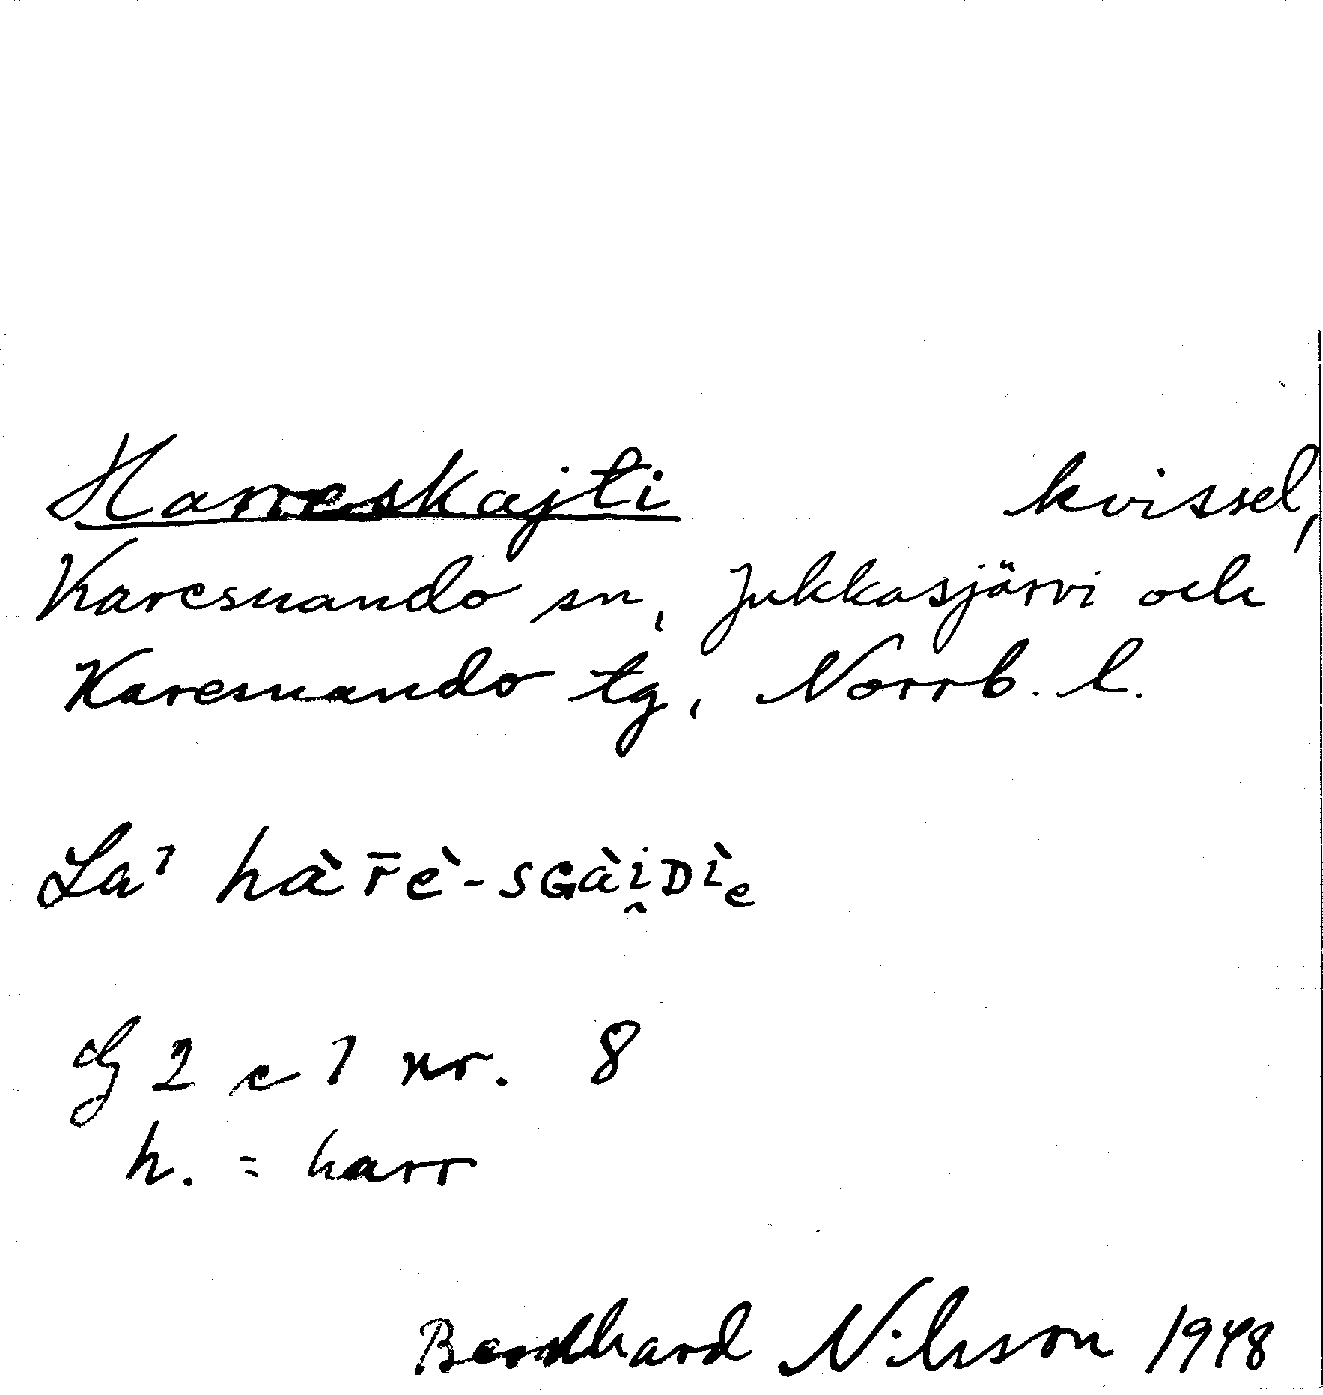 Harreskajti kvissel,
Karesuando sn, Jukkasjärvi och
Karesuando tg, Norrb. l.
La⁷ hàr̄è-sɢài̯ᴅìₑ
G 2 c 7 nr. 8
h. = harr
Bernhard Nilsson 1948